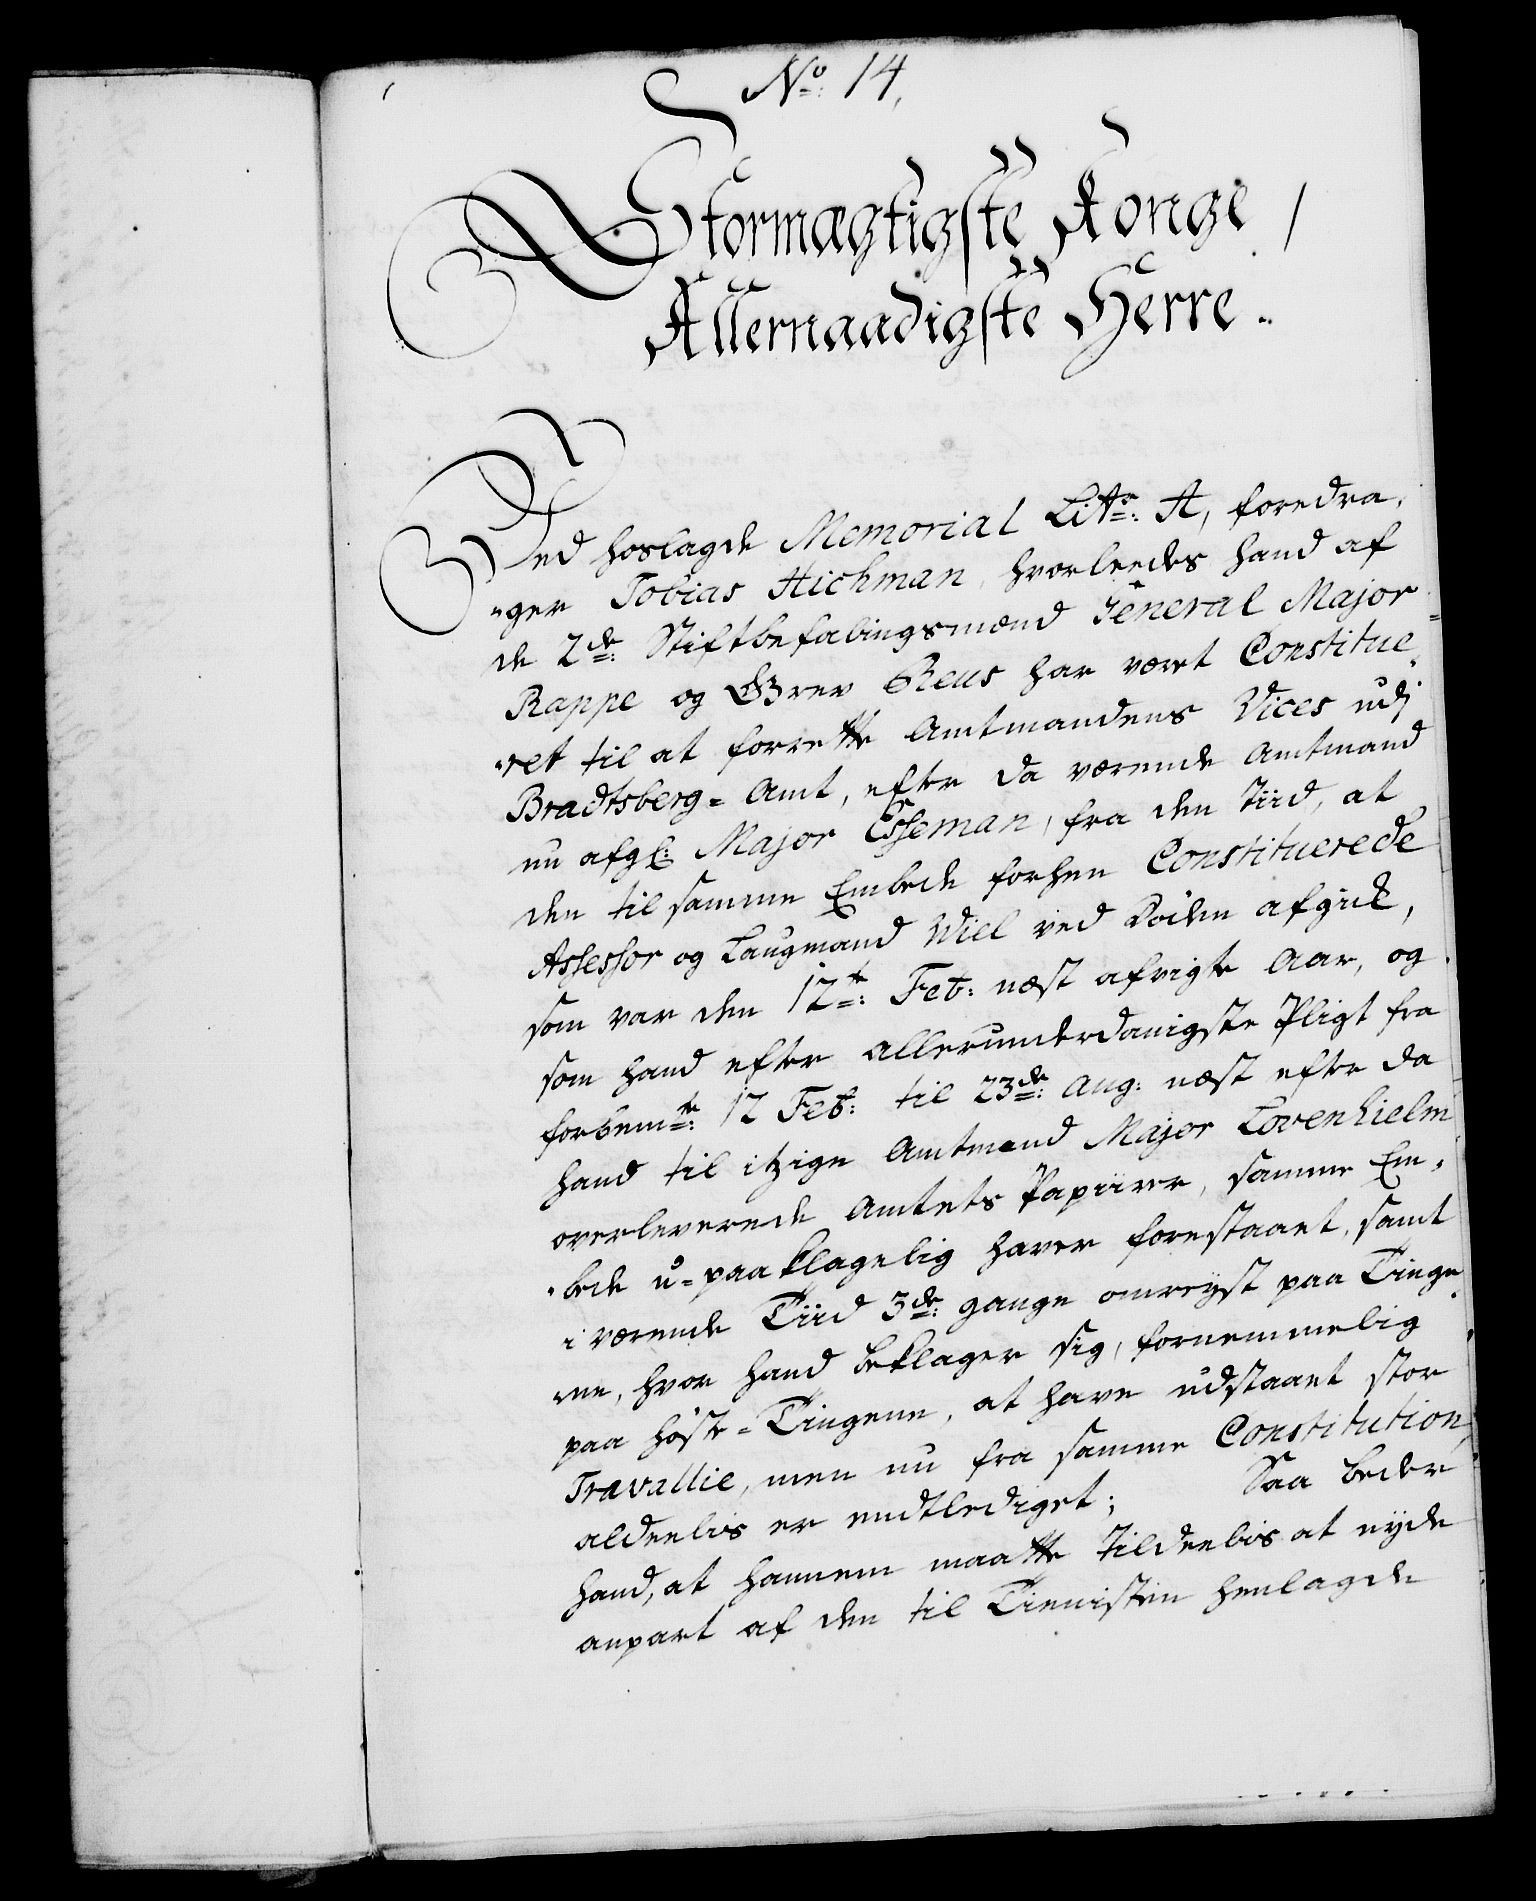 No: 14,
Stormægtigste Konge /
Allernaadigste Herre.
Ved hoslagde Memorial Litr: A, foredra„
„ger Tobias Aichman, hvorleedes hand af
de 2de: Stiftbefalingsmænd General Major
Rappe og Grev Reus har været Constitue„
„ret til at forrette Amtmandens Vices udj
Bradtsberg= Amt, efter da værende Amtmand
nu afgl: Major Esseman, fra den Tiid, at
den til samme Embede forhen Constituerede
Assessor og Laugmand Wiel ved Døden afgick,
som var den 12te: Feb: næst afvigte Aar, og
som hand efter allerunderdanigste Pligt fra
forbemte: 12 Feb: til 23de: Aug: næst efter da
hand til itzige Amtmand Major Lövenhielm
overleverede Amtets Papiirer, samme Em„
„bede u=paaklagelig haver forestaaet, samt
i værende Tiid 3de: gange omreyst paa Tinge„
„ne, hvor hand beklager sig, fornemmelig
paa Høste=Tingene, at have udstaaet stor
Travallie, men nu fra samme Constitution,
aldeelis er endtlediget; Saa beder
hand, at hannem maatte Tildeelis at nyde
anpart af den til Tienisten henlagde